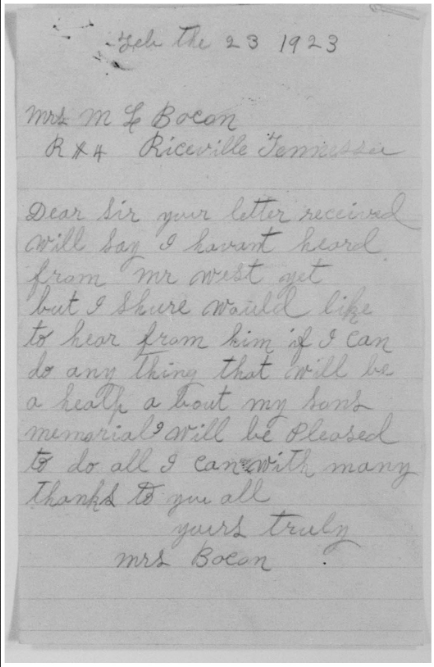 Feb the 23 1923
Mrs M L Bacon
R # 4 Riceville Tennessee
Dear Sir your letter received
will say I havant heard
from Mr West yet
but I Shure would like
to hear from him if I can
do any thing that will be
a healp a bout my sons
memorial I will be Pleased
to do all I can with many
thanks to you all
yours truly
Mrs Bacon